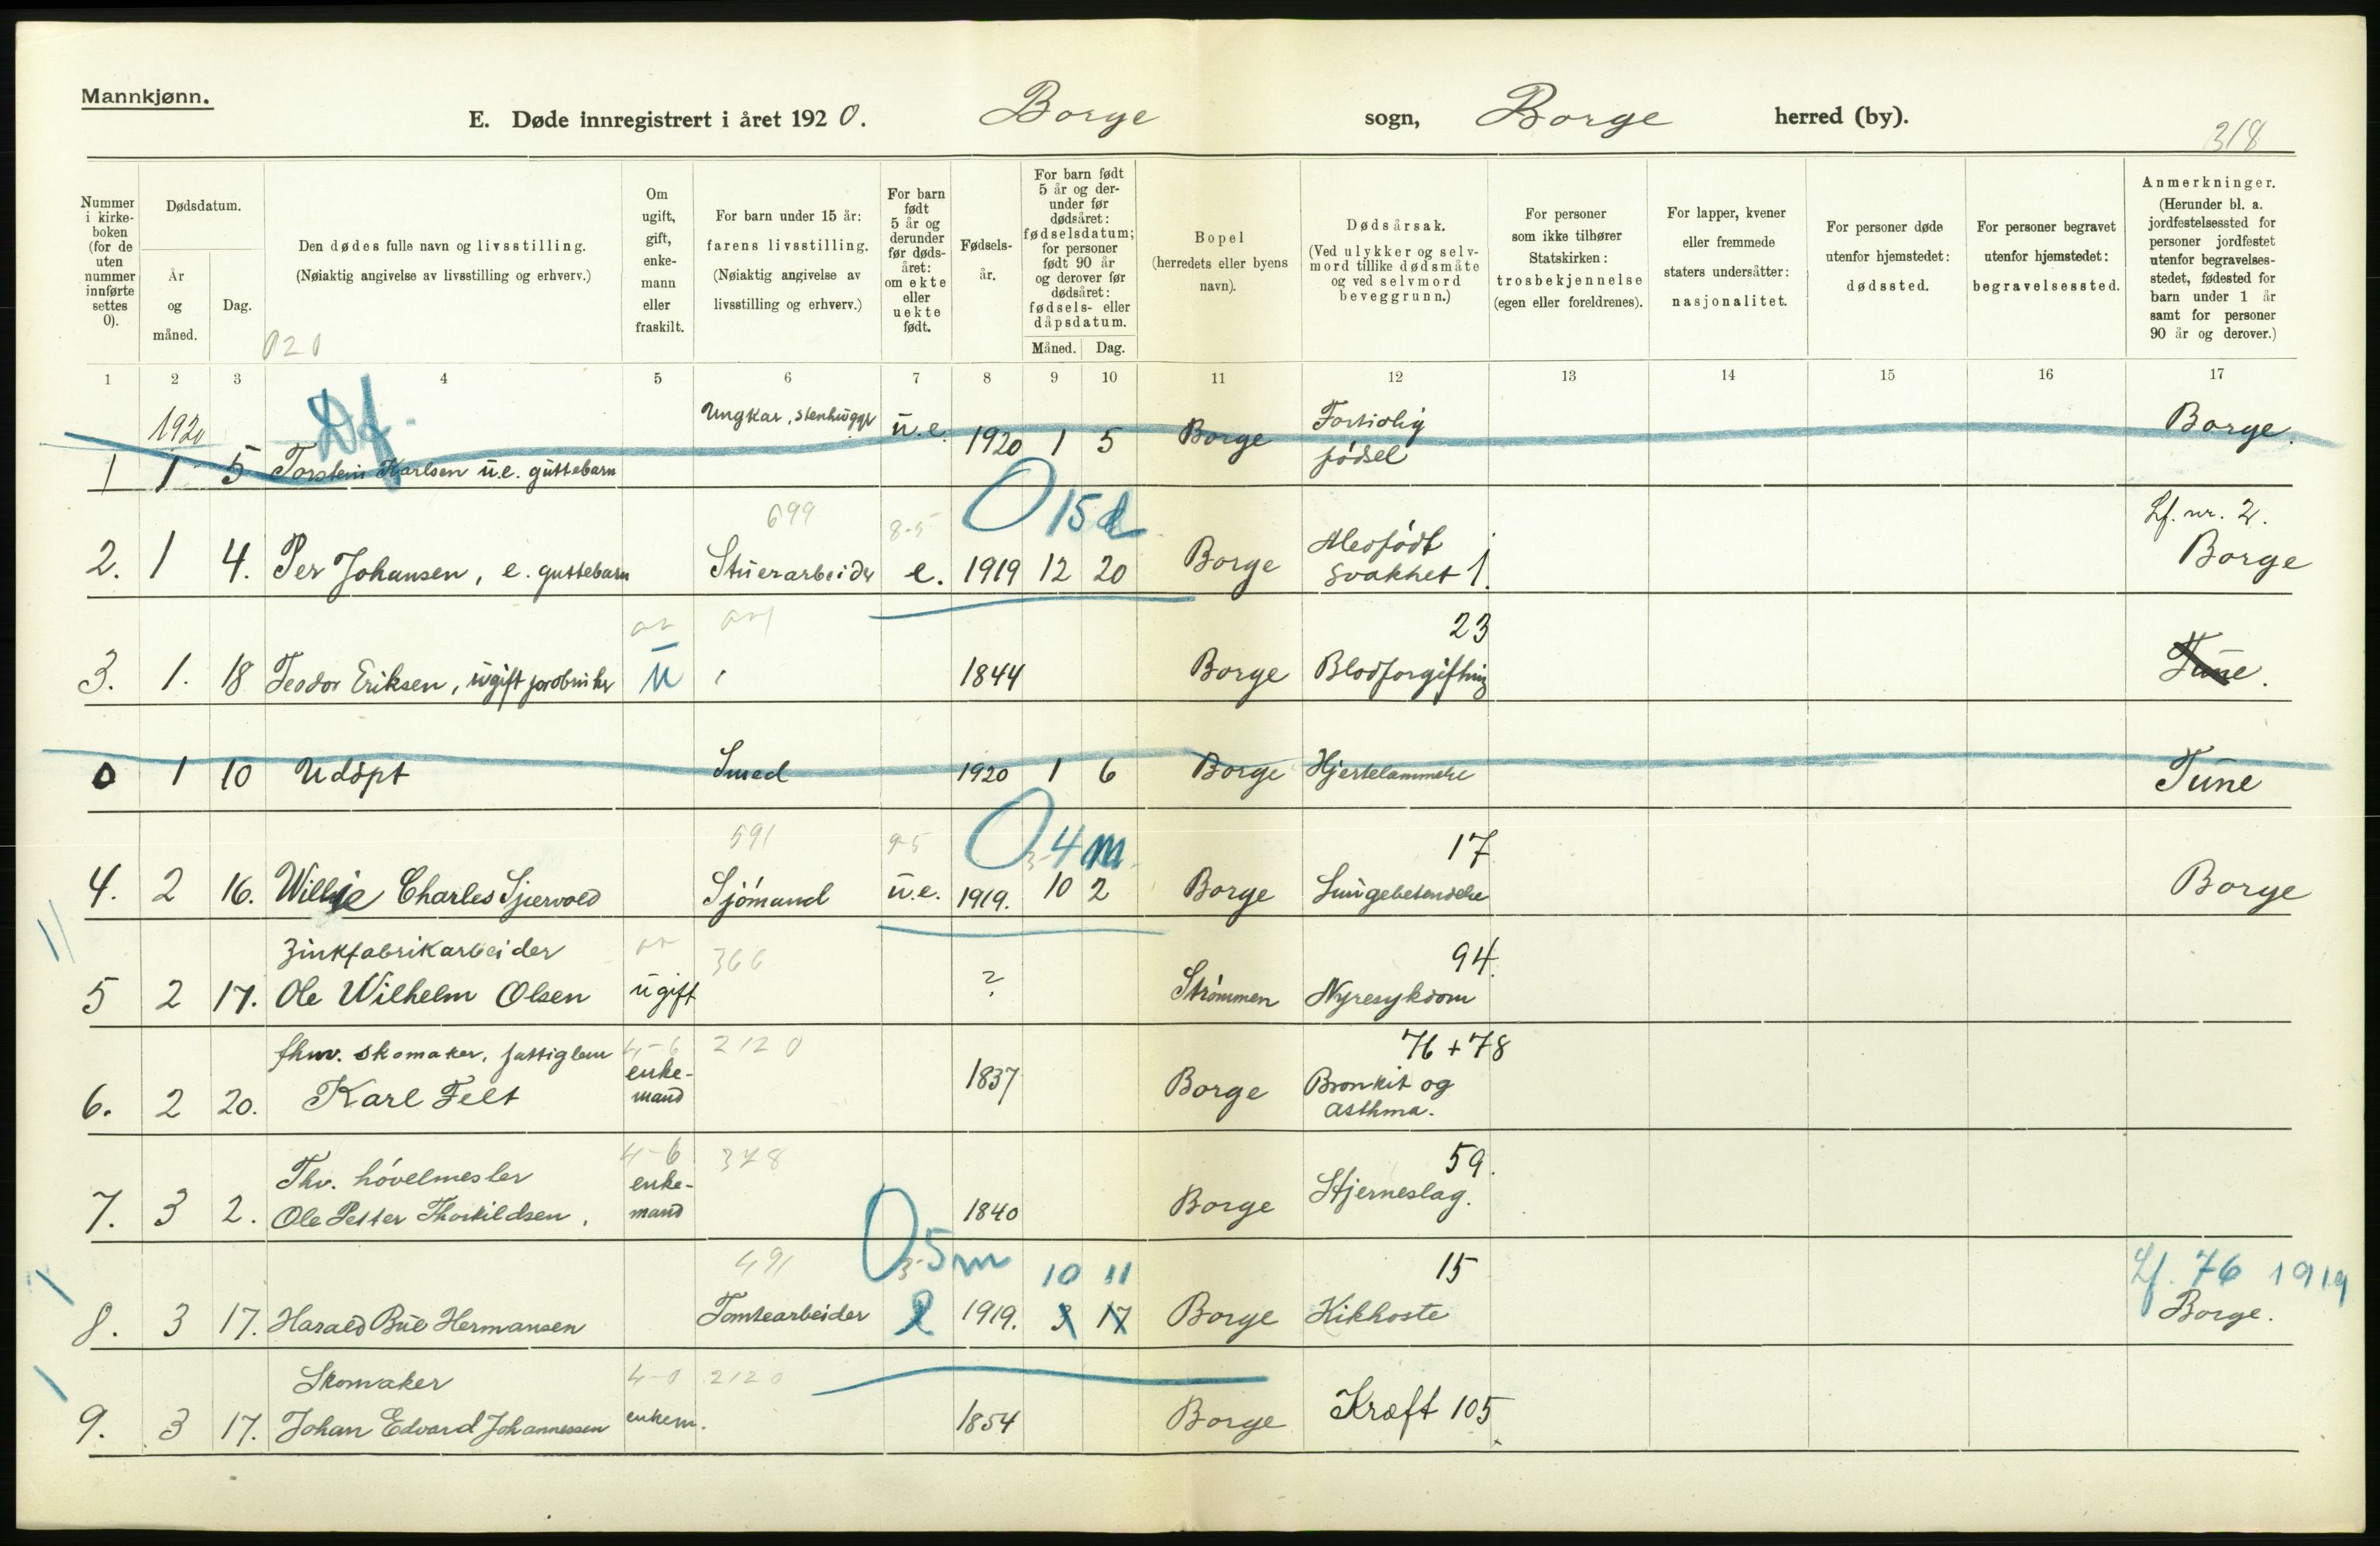 Mannkjønn.
E. Døde innregistrert i året 1920. Borge sogn, Borge herred (by).
318
Nummer i kirkeboken (for de uten nummer innførte settes 0).
Dødsdatum.
År og måned.
Dag.
Den dødes fulle navn og livsstilling.
(Nøiaktig angivelse av livsstilling og erhverv.)
020
Om ugift, gift, enkemann eller fraskilt.
For barn under 15 år: farens livsstilling.
(Nøiaktig angivelse av livsstilling og erhverv.)
For barn født 5 år og derunder før dødsåret: om ekte eller uekte født.
Fødselsår.
For barn født 5 år og derunder før dødsåret: fødselsdatum; for personer født 90 år og derover før dødsåret: fødsels- eller dåpsdatum.
Måned. Dag.
Bopel (herredets eller byens navn).
Dødsårsak.
(Ved ulykker og selvmord tillike dødsmåte og ved selvmord beveggrunn.)
For personer som ikke tilhører Statskirken: trosbekjennelse (egen eller foreldrenes).
For lapper, kvener eller fremmede staters undersåtter: nasjonalitet.
For personer døde utenfor hjemstedet: dødssted.
For personer begravet utenfor hjemstedet: begravelsessted.
Anmerkninger.
(Herunder bl. a. jordfestelsessted for personer jordfestet utenfor begravelsesstedet, fødested for barn under 1 år samt for personer 90 år og derover.)
1 2 3 4 5 6 7 8 9 10 11 12 13 14 15 16 17
1920 Df. Ungkar, stenhugger
1 1 5 Torstein Karlsen u.e. guttebarn u.e. 1920 1 5 Borge Fortidlig fødsel Borge.
699 8-5 0 15 d Lf. nr. 2.
2. 1 4. Per Johansen, e. guttebarn Stuerarbeider e. 1919 12 20 Borge Medfødt svakhet 1. Borge
23
3. 1. 18 Teodor Eriksen, ugift u 1844 Borge Blodforgiftning Tune.
0 1 10 Udöpt Smed 1920 1 6 Borge Hjertelammelse Tune
591 9-5 0 4 m 17
4. 2 16. Willie Charles Sjervold Sjømand u.e. 1919. 10 2 Borge Lungebetendelse Borge
Zinkfabrikarbeider 366 94.
5 2 17. Ole Wilhelm Olsen ugift ? Strømmen Nyresykdom
fhv. skomaker, fattiglem 4-6 2120 76 + 78
6. 2 20. Karl Felt enke-mand 1837 Borge Bronkit og asthma.
Fhv. hövelmester 4-6 378 59.
7. 3 2. Ole Petter Thorkildsen, enke-mand 1840 Borge Hjerneslag.
491 0 5 m 10 11 15 Lf. 76 1919
8. 3 17. Harald Bue Hermansen Tomtearbeider e 1919. 3 17 Borge Kikhoste Borge.
Skomaker 4-0 2120
9. 3 17. Johan Edvard Johannessen enkem. 1854 Borge Kræft 105